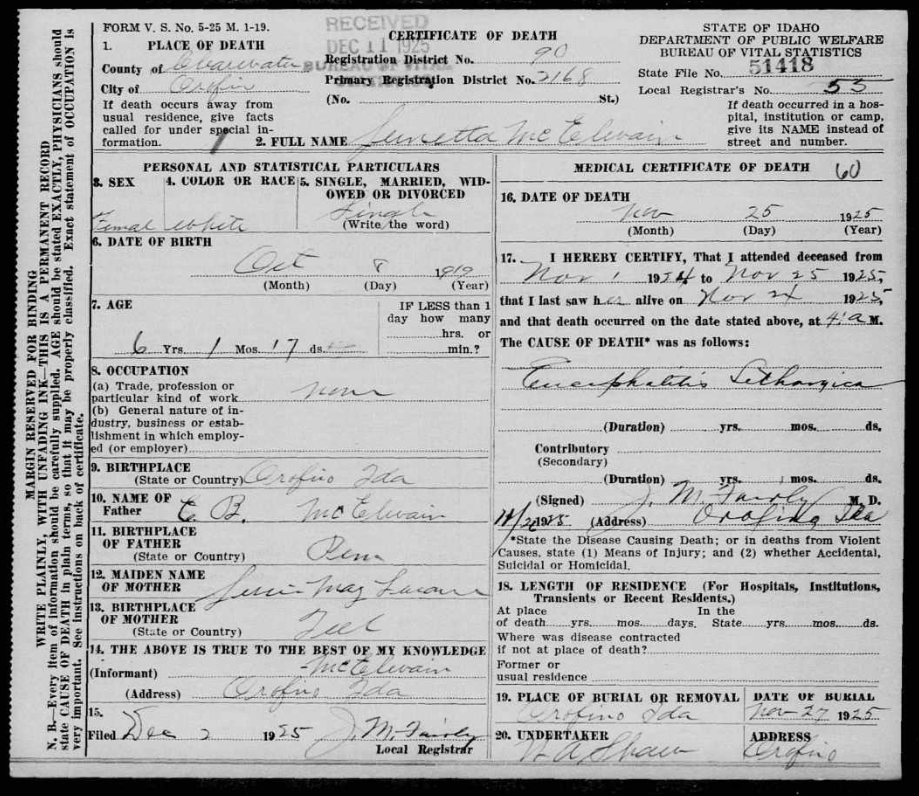 MARGIN RESERVED FOR BINDING
WRITE PLAINLY, WITH UNFADING INK—THIS IS A PERMANENT RECORD
N. B.—Every item of information should be carefully supplied. AGE should be stated EXACTLY, PHYSICIANS should
state CAUSE OF DEATH in plain terms, so that it may be properly classified. Exact statement of OCCUPATION is
very important. See instructions on back of certificate.
FORM V. S. No. 5-25 M. 1-19.
RECEIVED
DEC 11 1925
BUREAU OF VITAL
CERTIFICATE OF DEATH
STATE OF IDAHO
DEPARTMENT OF PUBLIC WELFARE
BUREAU OF VITAL STATISTICS
1. PLACE OF DEATH
County of Clearwater
City of Orofin
If death occurs away from
usual residence, give facts
called for under special in-
formation.
Registration District No. 90
Primary Registration District No. 2168
(No. St.)
State File No. 51418
Local Registrar's No. 55
If death occurred in a hos-
pital, institution or camp,
give its NAME instead of
street and number.
2. FULL NAME McElwain
PERSONAL AND STATISTICAL PARTICULARS
3. SEX Femal
4. COLOR OR RACE White
5. SINGLE, MARRIED, WID-
OWED OR DIVORCED
Single
(Write the word)
6. DATE OF BIRTH
Oct 8 1919
(Month) (Day) (Year)
7. AGE
6 Yrs. 1 Mos. 17 ds.
IF LESS than 1
day how many
hrs. or
min.?
8. OCCUPATION
(a) Trade, profession or
particular kind of work none
(b) General nature of in-
dustry, business or estab-
lishment in which employ-
ed (or employer)
9. BIRTHPLACE
(State or Country) Orofino Ida
10. NAME OF
Father E. B. McElwain
11. BIRTHPLACE
OF FATHER
(State or Country)
12. MAIDEN NAME
OF MOTHER May
13. BIRTHPLACE
OF MOTHER
(State or Country)
14. THE ABOVE IS TRUE TO THE BEST OF MY KNOWLEDGE
(Informant) McElwain
(Address) Orofino Ida
15.
Filed Dec 2 1925 J. M. Fairly
Local Registrar
MEDICAL CERTIFICATE OF DEATH 60
16. DATE OF DEATH
Nov 25 1925
(Month) (Day) (Year)
17. I HEREBY CERTIFY, That I attended deceased from
Nov 1 1924 to Nov 25 1925,
that I last saw her alive on Nov 24 1925,
and that death occurred on the date stated above, at 4 a M.
The CAUSE OF DEATH* was as follows:
Encephalitis Lethargica
(Duration) yrs. mos. ds.
Contributory
(Secondary)
(Duration) yrs. mos. ds.
(Signed) J. M. Fairly M. D.
1925 (Address) Orofino Ida
*State the Disease Causing Death; or in deaths from Violent
Causes, state (1) Means of Injury; and (2) whether Accidental,
Suicidal or Homicidal.
18. LENGTH OF RESIDENCE (For Hospitals, Institutions,
Transients or Recent Residents.)
At place In the
of death yrs. mos. days. State yrs. mos. ds.
Where was disease contracted
if not at place of death?
Former or
usual residence
19. PLACE OF BURIAL OR REMOVAL
Orofino Ida
DATE OF BURIAL
Nov 27 1925
20. UNDERTAKER
W A Shaw
ADDRESS
Orofino